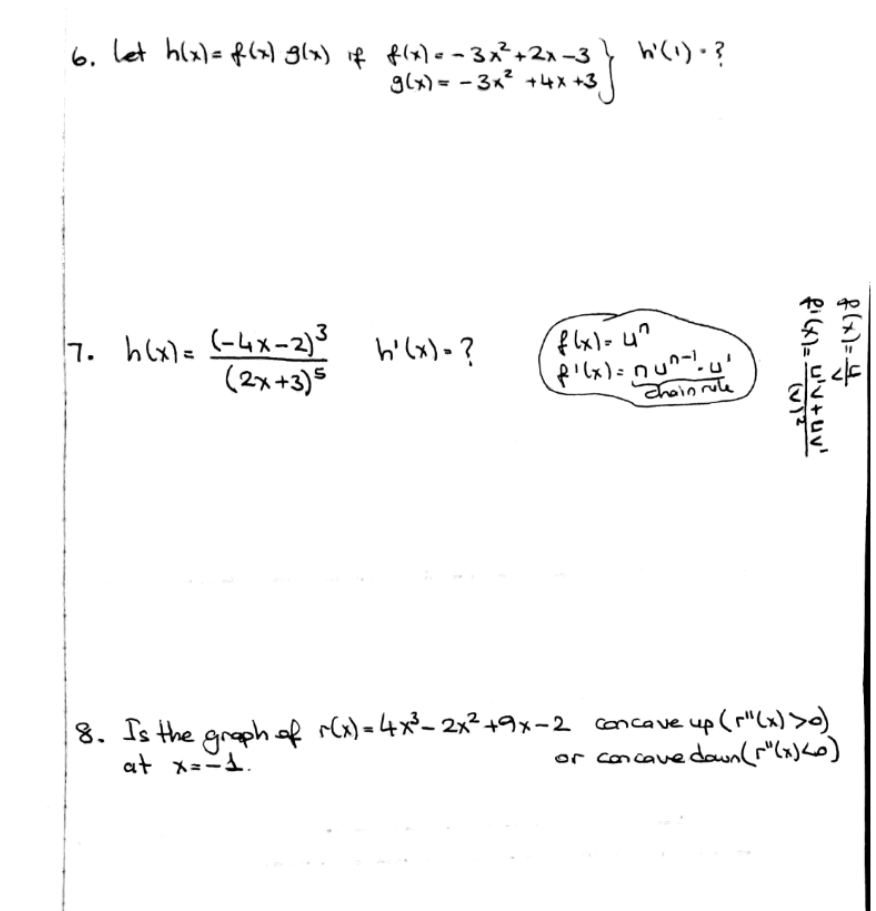 6. Let h(x) = f(x) g(x) if f(x) = -3x² + 2x - 3 } h'(1) = ?
g(x) = -3x² + 4x + 3
7. h(x) = (-4x-2)³ / (2x+3)⁵ h'(x) = ?
f(x) = uⁿ
f'(x) = n uⁿ⁻¹ . u'
chain rule
f(x) = u/v
f'(x) = u'v + uv' / (v)²
8. Is the graph of r(x) = 4x³ - 2x² + 9x - 2 concave up (r''(x) > 0)
at x = -1. or concave down (r''(x) < 0)